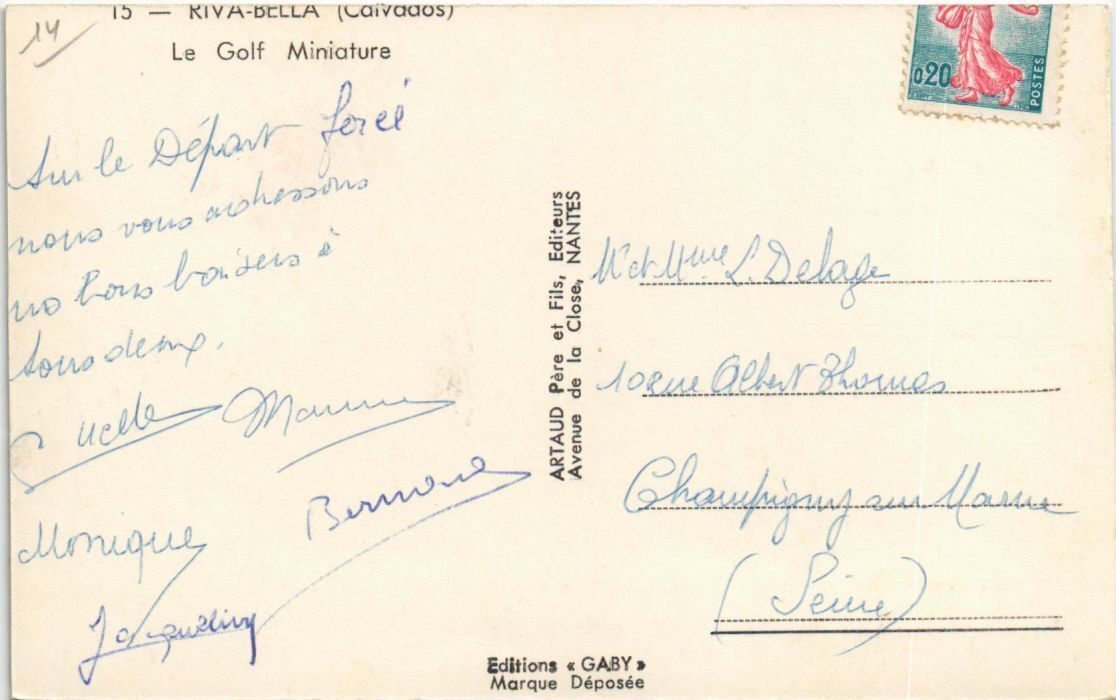 14
15 — RIVA-BELLA (Calvados)
Le Golf Miniature
0,20
POSTES
Sur le Départ forcé
nous vous adressons
nos bons baisers à
tous deux.
Monique
Bernard
Jacqueline
ARTAUD Père et Fils, Editeurs
Avenue de la Close, NANTES
Mr et Mme L. Delage
10 rue Albert Thomas
Champigny sur Marne
(Seine)
Editions « GABY »
Marque Déposée